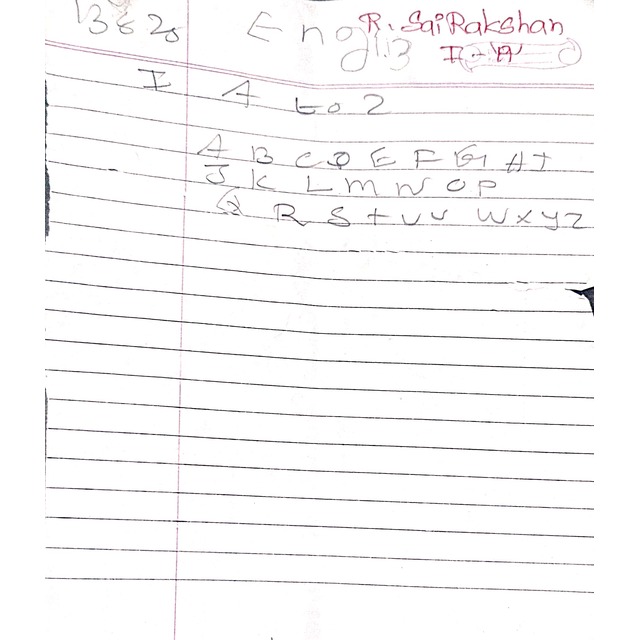 13820 English R. SaiRakshan
I - 'A'
I A to Z
A B C D E F G H I
J K L M N O P
Q R S t u v w x y z